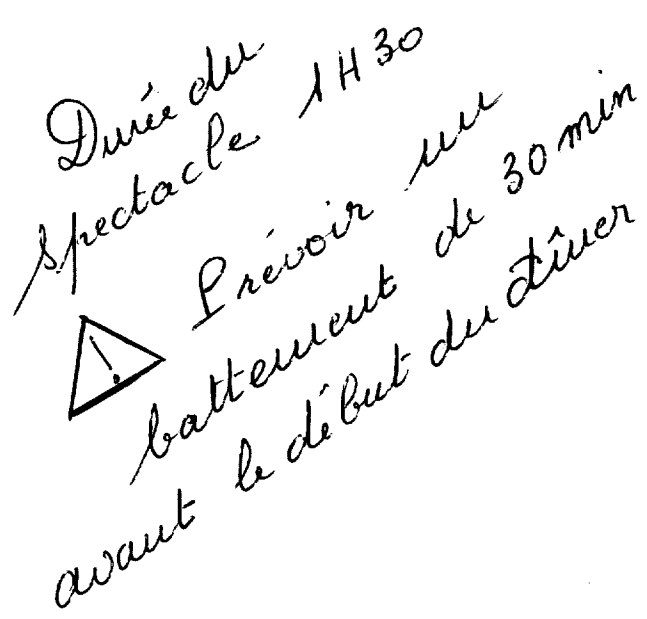 Durée du
spectacle 1H30
Prévoir un
battement de 30 min
avant le début du dîner